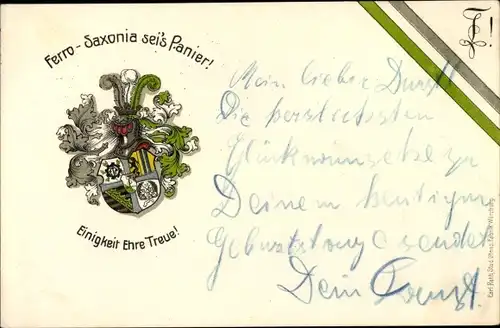 Ferro-Saxonia sei's Panier!
Mein lieber
Die herzlichsten
Glückwünsche zu
Deinem heutigen
Geburtstage sendet
Dein
Einigkeit Ehre Treue!